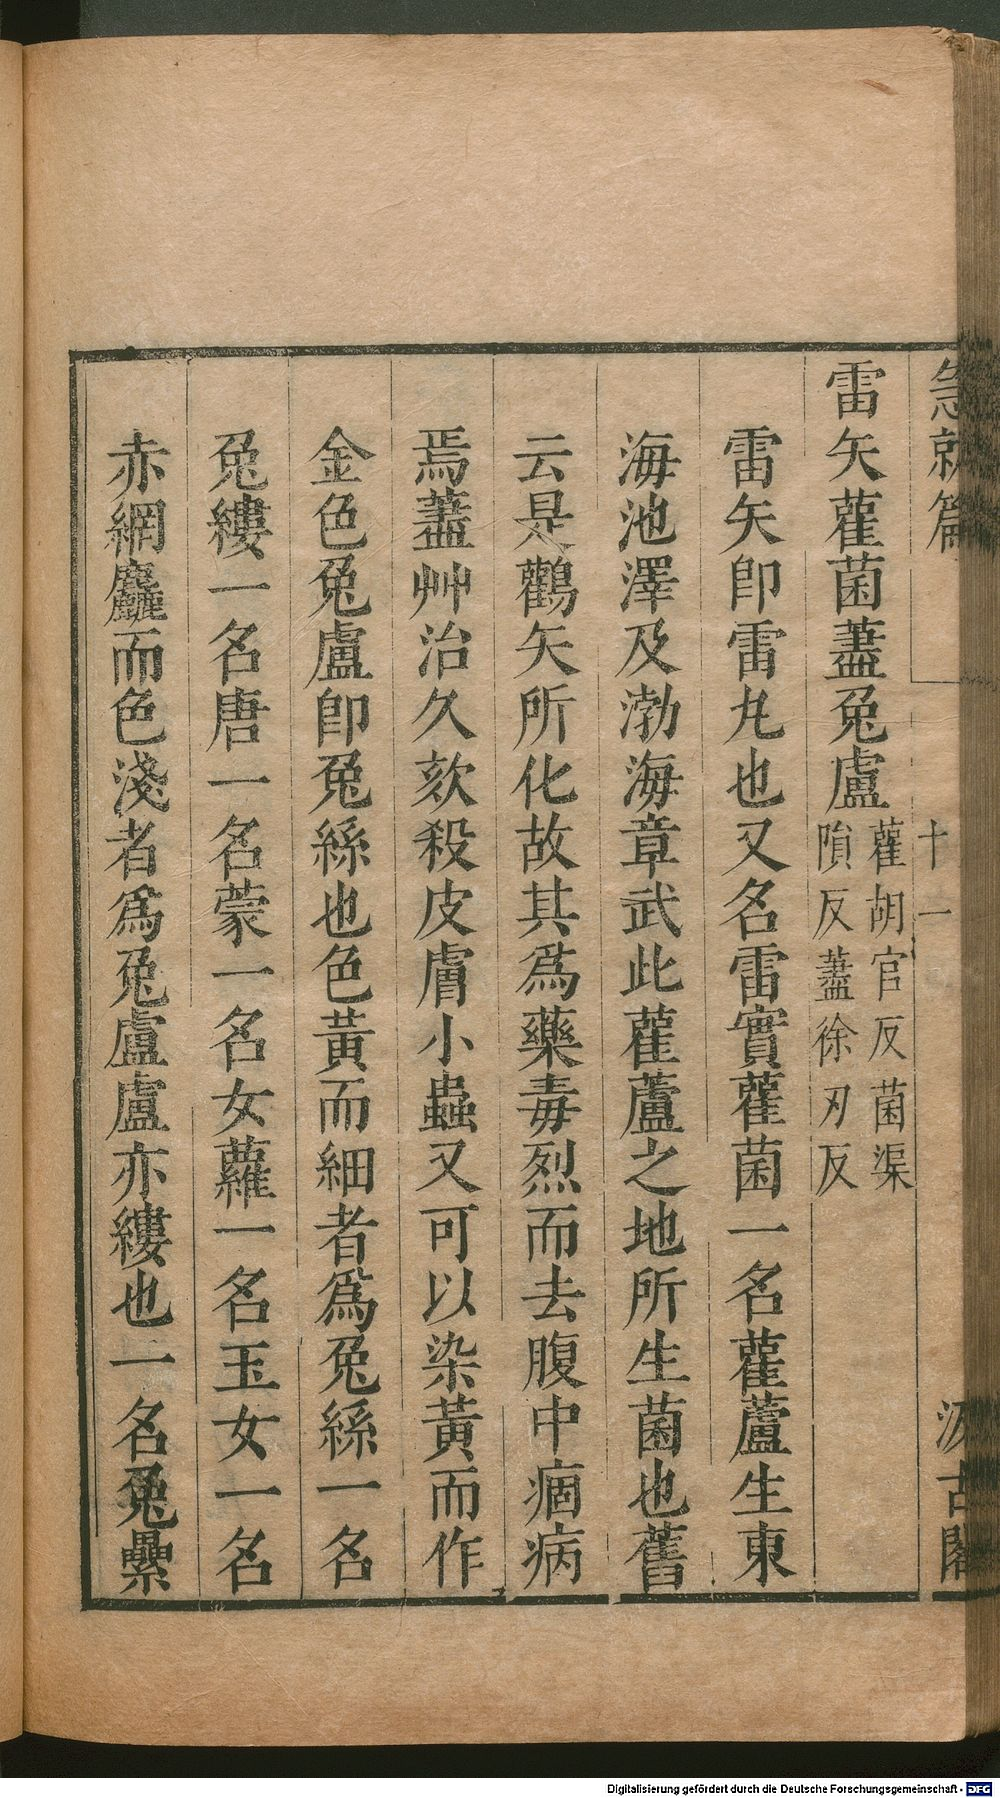 急就篇
十一
汲古閣
雷矢雚菌藎兔盧
雚胡官反菌渠
隕反藎徐刃反
雷矢卽雷丸也又名雷實雚菌一名雚蘆生東
海池澤及渤海章武此雚蘆之地所生菌也舊
云是鸛矢所化故其爲藥毒烈而去腹中痼病
焉藎艸治久欬殺皮膚小蟲又可以染黃而作
金色兔盧卽兔絲也色黃而細者爲兔絲一名
兔縷一名唐一名蒙一名女蘿一名玉女一名
赤網麤而色淺者爲兔盧盧亦縷也一名兔纍
Digitalisierung gefördert durch die Deutsche Forschungsgemeinschaft - DFG